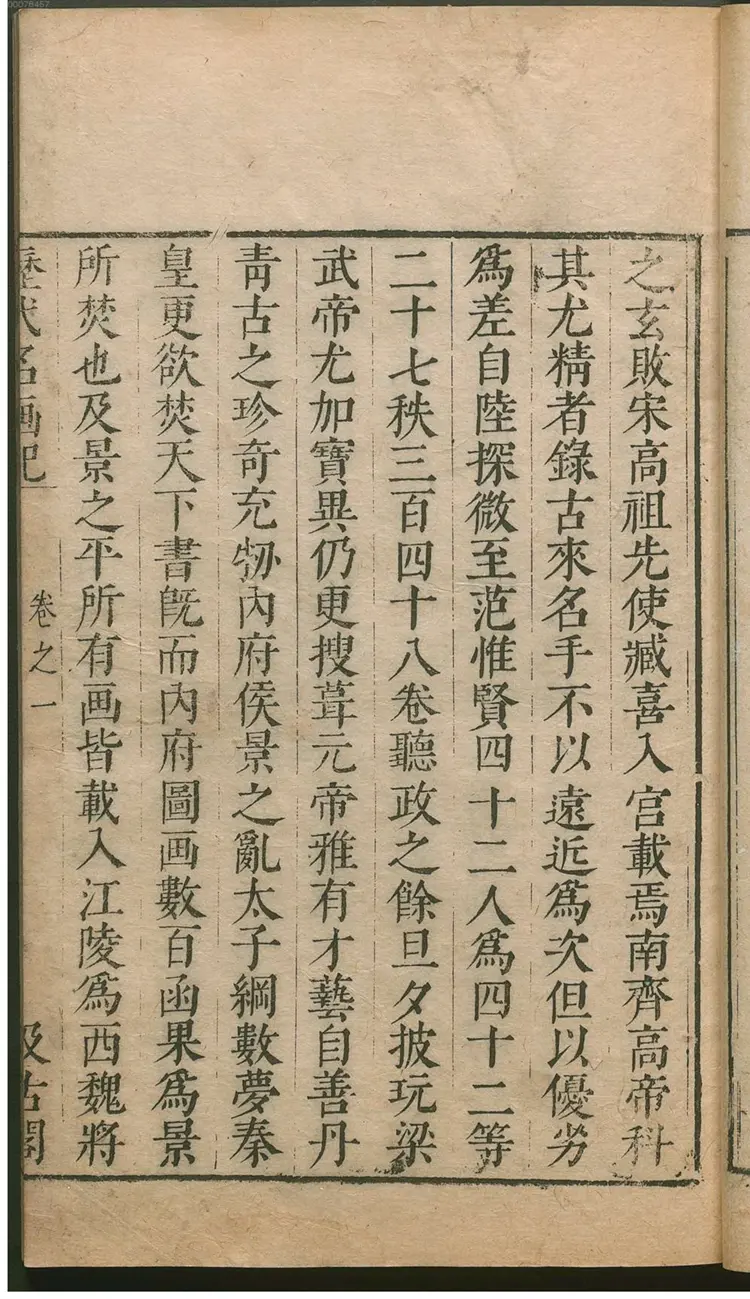 之玄敗宋高祖先使臧喜入宮載焉南齊高帝科
其尤精者錄古來名手不以遠近爲次但以優劣
爲差自陸探微至范惟賢四十二人爲四十二等
二十七秩三百四十八卷聽政之餘旦夕披玩梁
武帝尤加寶異仍更搜葺元帝雅有才藝自善丹
靑古之珍奇充牣內府侯景之亂太子綱數夢秦
皇更欲焚天下書旣而內府圖画數百函果爲景
所焚也及景之平所有画皆載入江陵爲西魏將
歷代名画記 卷之一 汲古閣